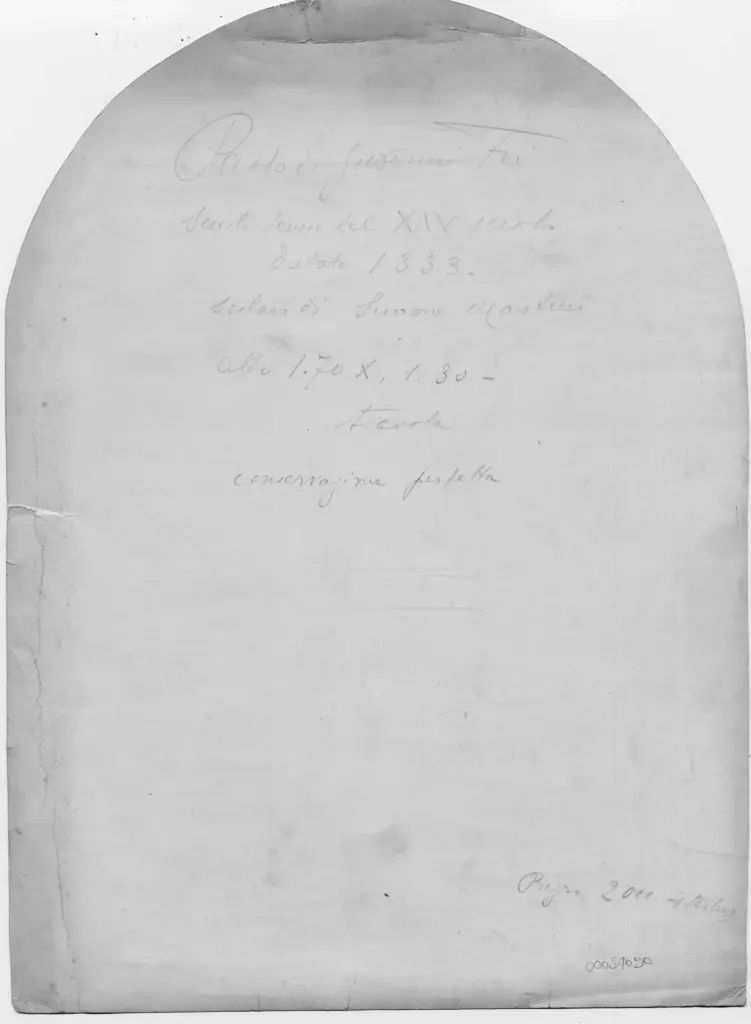 Paolo di Giovanni Fei
Scuola Senese del XIV secolo
Datato 1333.
scolaro di Simone Martini
alto 1.70 X. 1.30 -
Tavola
conservazione perfetta
2000
00054090